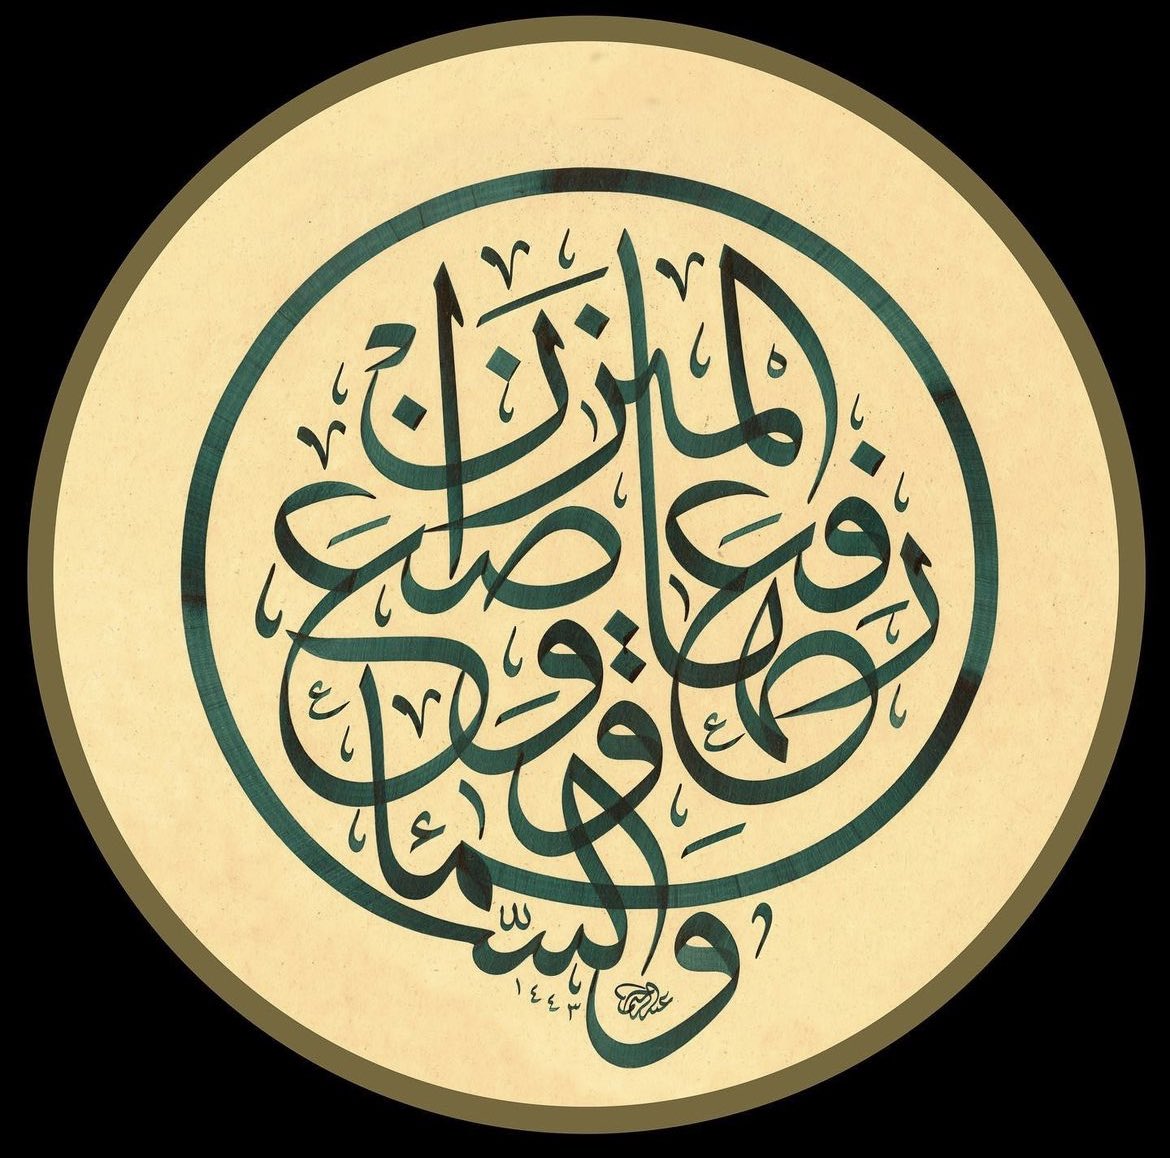 وَالسَّمَاءَ رَفَعَهَا وَوَضَعَ الْمِيزَانَ
١٤٤٣